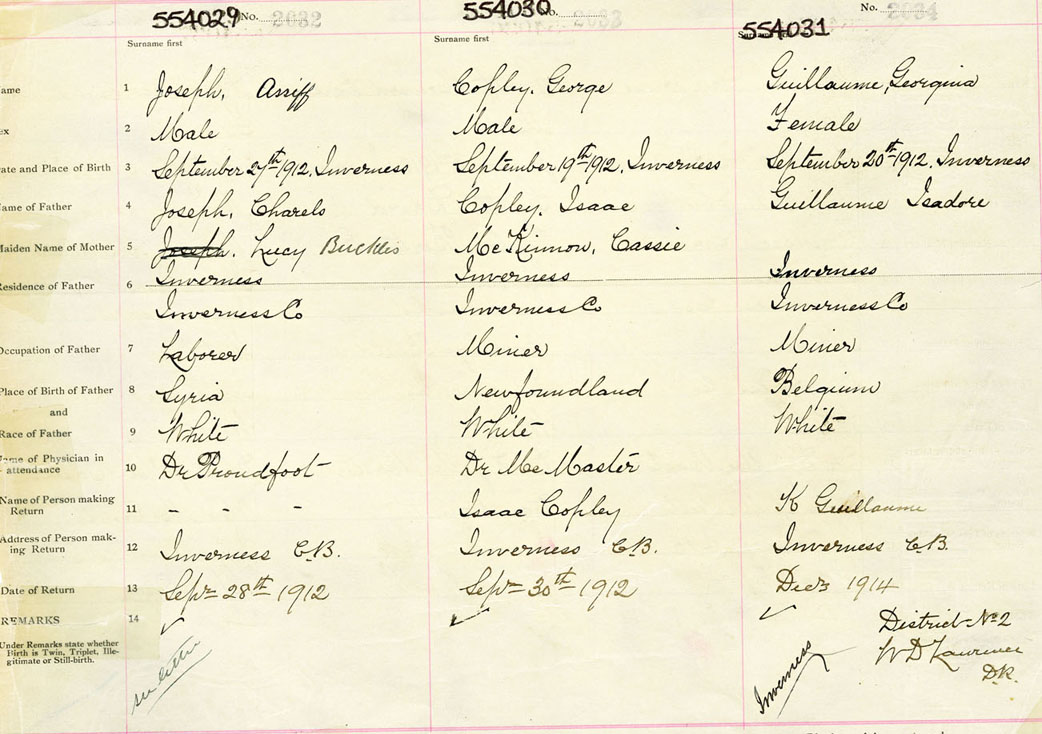 554029 No. 2032 554030 No. 2033 554031 No. 2034
Surname first Surname first
ame 1 Joseph, Ariff Copley, George Guillaume, Georgina
ex 2 Male Male Female
ate and Place of Birth 3 September 27th 1912. Inverness September 19th 1912. Inverness September 20th 1912. Inverness
ame of Father 4 Joseph, Charels Copley, Isaac Guillaume Isadore
Maiden Name of Mother 5 Joseph, Lucy Bucklis McKinnow, Cassie
Residence of Father 6 Inverness Inverness Inverness
Inverness Co Inverness Co Inverness Co
Occupation of Father 7 Laborer Miner Miner
Place of Birth of Father 8 Syria Newfoundland Belgium
and
Race of Father 9 White White White
ame of Physician in attendance 10 Dr Proudfoot Dr McMaster
Name of Person making Return 11 - - - Isaac Copley K Guillaume
Address of Person making Return 12 Inverness C.B. Inverness C.B. Inverness C.B.
Date of Return 13 Sept 28th 1912 Sept 30th 1912 Dec 3 1914
REMARKS 14
Under Remarks state whether
Birth is Twin, Triplet, Ille-
gitimate or Still-birth.
see letter
Inverness
District No 2
W D Lawrence
D.R.